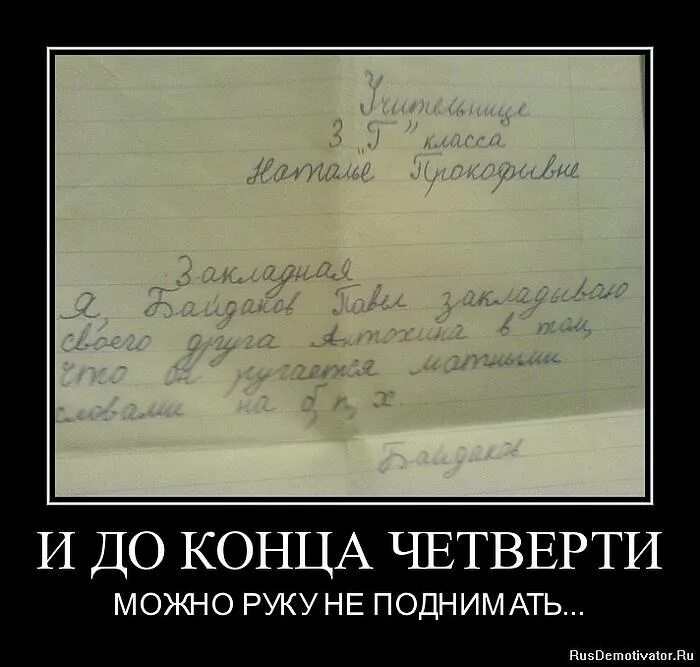 Учительнице
3 „Г" класса
Наталье Прокофивне
Закладная
Я, Байдаков Павел закладываю
своего друга Антохина в том,
что он ругается матными
словами на б, п, х.
Байдаков
И ДО КОНЦА ЧЕТВЕРТИ
МОЖНО РУКУ НЕ ПОДНИМАТЬ...
RusDemotivator.Ru